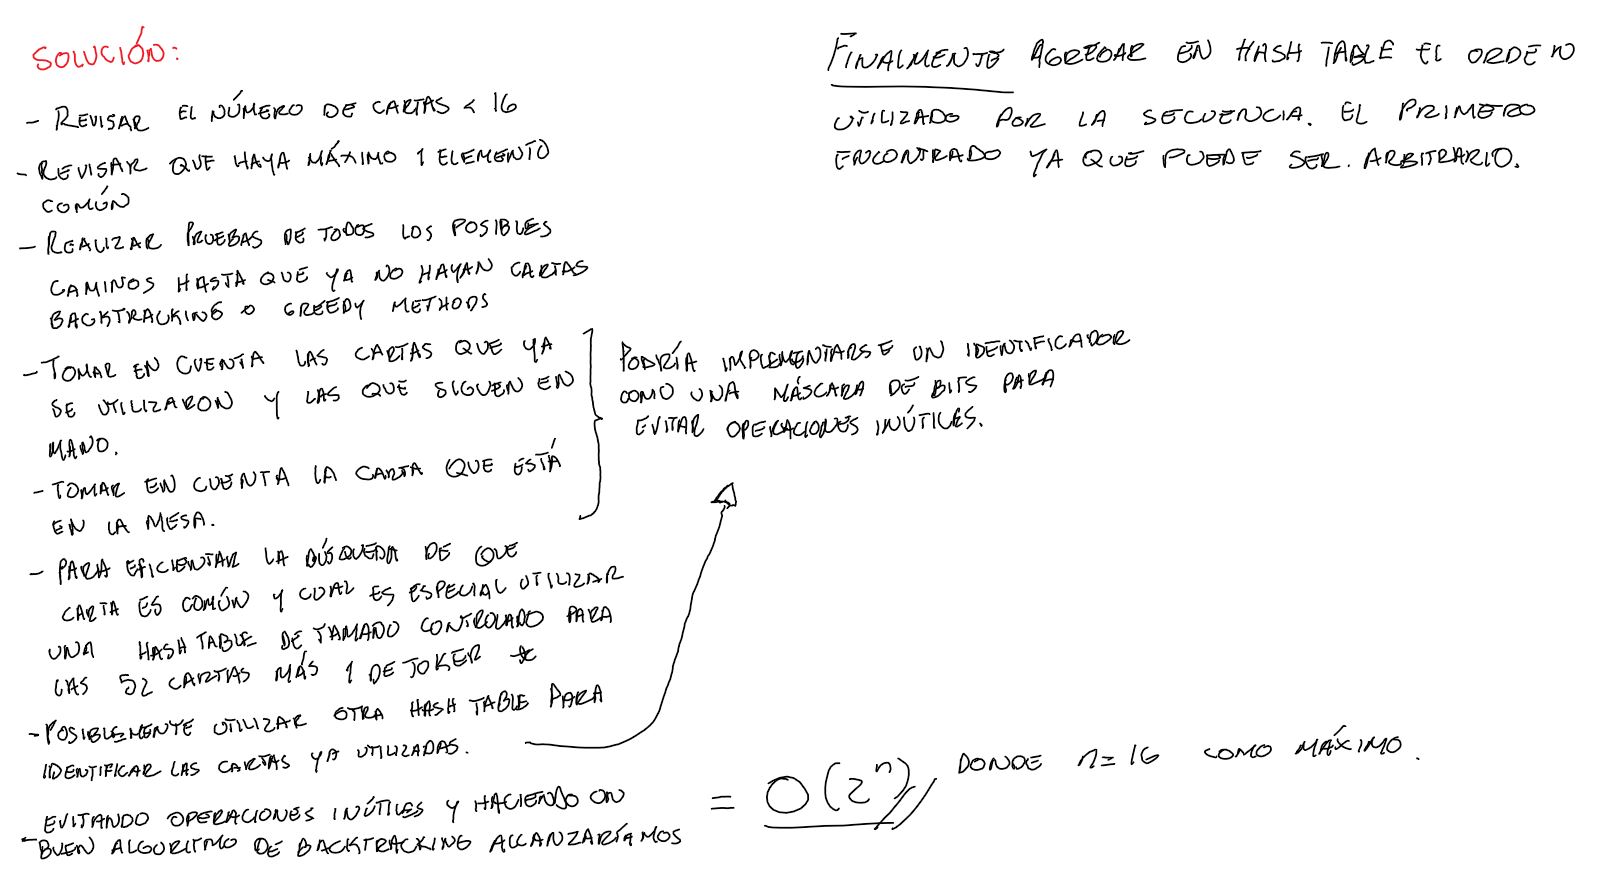 SOLUCIÓN:
- REVISAR EL NÚMERO DE CARTAS < 16
- REVISAR QUE HAYA MÁXIMO 1 ELEMENTO
COMÚN
- REALIZAR PRUEBAS DE TODOS LOS POSIBLES
CAMINOS HASTA QUE YA NO HAYAN CARTAS
BACKTRACKING O GREEDY METHODS
- TOMAR EN CUENTA LAS CARTAS QUE YA
SE UTILIZARON Y LAS QUE SIGUEN EN
MANO.
- TOMAR EN CUENTA LA CARTA QUE ESTÁ
EN LA MESA.
PODRÍA IMPLEMENTARSE UN IDENTIFICADOR
COMO UNA MÁSCARA DE BITS PARA
EVITAR OPERACIONES INÚTILES.
- PARA EFICIENTAR LA BÚSQUEDA DE QUE
CARTA ES COMÚN Y CUAL ES ESPECIAL UTILIZAR
UNA HASH TABLE DE TAMAÑO CONTROLADO PARA
LAS 52 CARTAS MÁS 1 DE JOKER *
- POSIBLEMENTE UTILIZAR OTRA HASH TABLE PARA
IDENTIFICAR LAS CARTAS YA UTILIZADAS.
EVITANDO OPERACIONES INÚTILES Y HACIENDO UN
- BUEN ALGORITMO DE BACKTRACKING ALCANZARÍAMOS
= O(2^n), DONDE n=16 COMO MÁXIMO.
FINALMENTE AGREGAR EN HASH TABLE EL ORDEN
UTILIZADO POR LA SECUENCIA. EL PRIMERO
ENCONTRADO YA QUE PUEDE SER. ARBITRARIO.